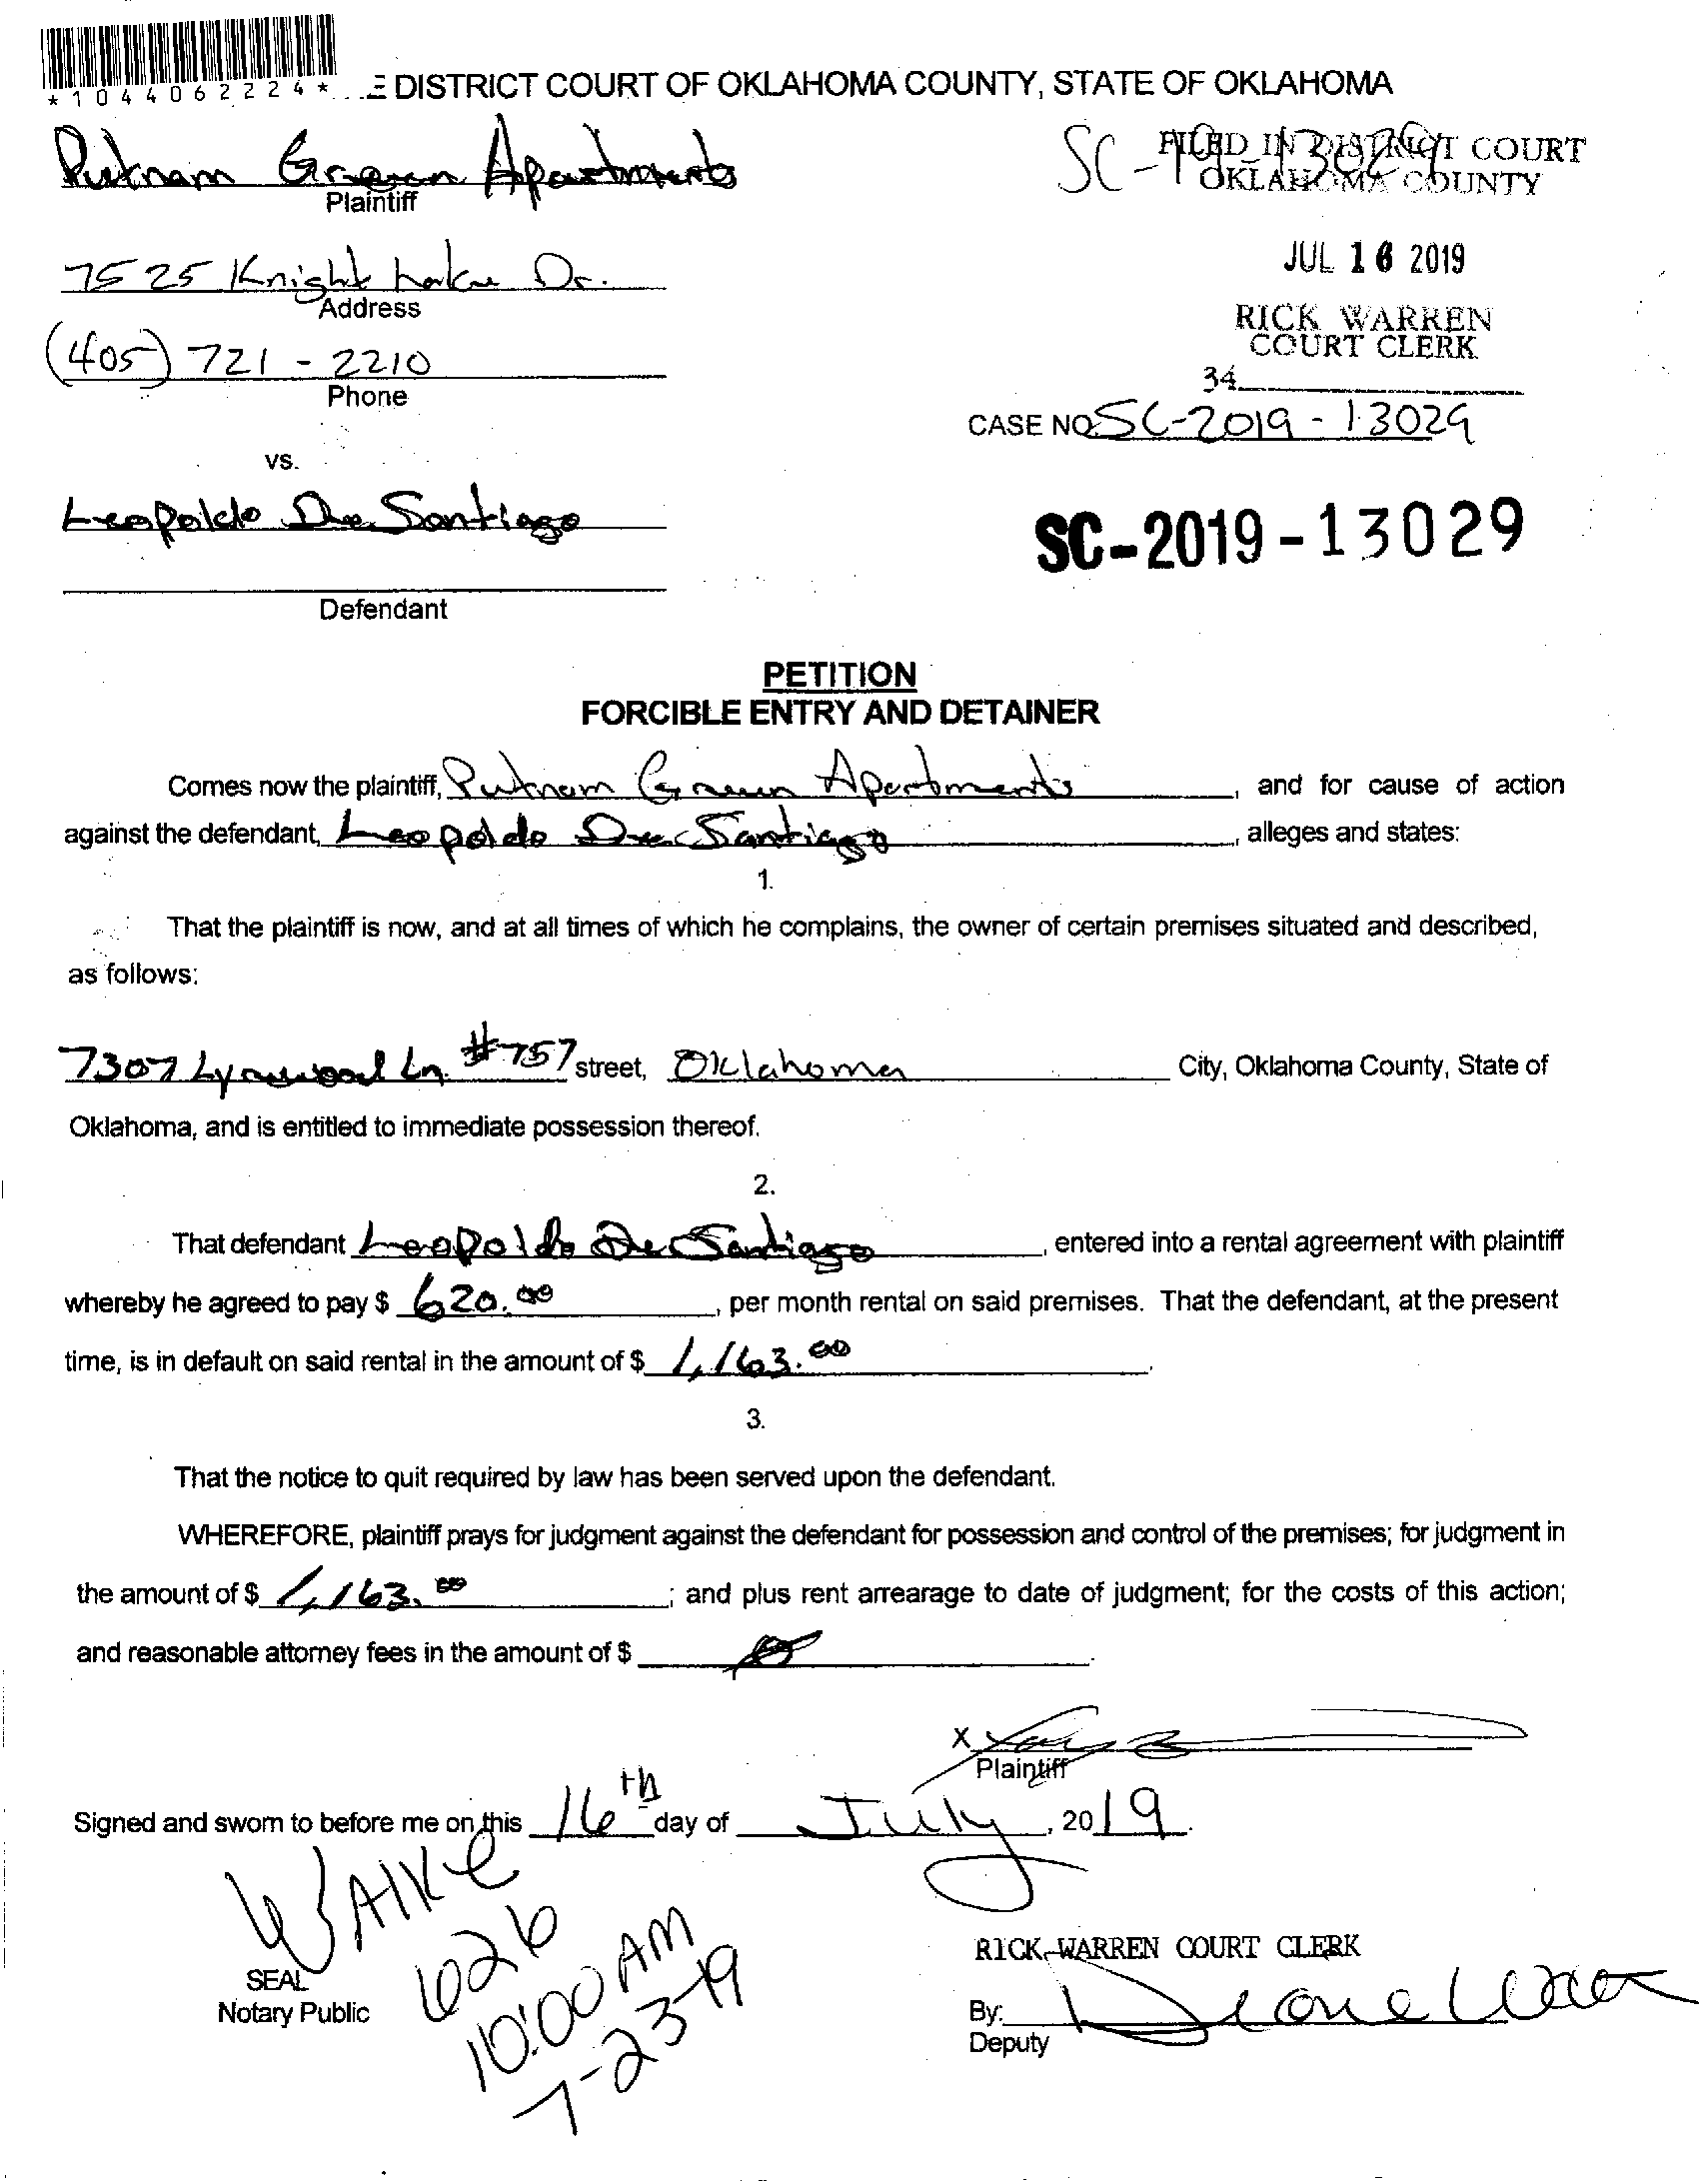 *1044062224*
E DISTRICT COURT OF OKLAHOMA COUNTY, STATE OF OKLAHOMA
Putnam Green Apartments
Plaintiff
SC-19-13029
FILED IN DISTRICT COURT
OKLAHOMA COUNTY
7525 Knight Lake Dr.
Address
JUL 16 2019
RICK WARREN
COURT CLERK
(405) 721-2210
Phone
34
CASE NO. SC-2019-13029
vs.
Leopoldo De Santiago
SC-2019-13029
Defendant
PETITION
FORCIBLE ENTRY AND DETAINER
Comes now the plaintiff, Putnam Green Apartments, and for cause of action
against the defendant, Leopoldo De Santiago, alleges and states:
1.
That the plaintiff is now, and at all times of which he complains, the owner of certain premises situated and described,
as follows:
7307 Lynnwood Ln. #757 street, Oklahoma City, Oklahoma County, State of
Oklahoma, and is entitled to immediate possession thereof.
2.
That defendant Leopoldo De Santiago, entered into a rental agreement with plaintiff
whereby he agreed to pay $ 620.00, per month rental on said premises. That the defendant, at the present
time, is in default on said rental in the amount of $ 1,163.00.
3.
That the notice to quit required by law has been served upon the defendant.
WHEREFORE, plaintiff prays for judgment against the defendant for possession and control of the premises; for judgment in
the amount of $ 1,163.00; and plus rent arrearage to date of judgment; for the costs of this action;
and reasonable attorney fees in the amount of $
X
Plaintiff
Signed and sworn to before me on this 16th day of July, 2019.
WAlKe
626
10:00 AM
7-23-19
SEAL
Notary Public
RICK WARREN COURT CLERK
By:
Deputy